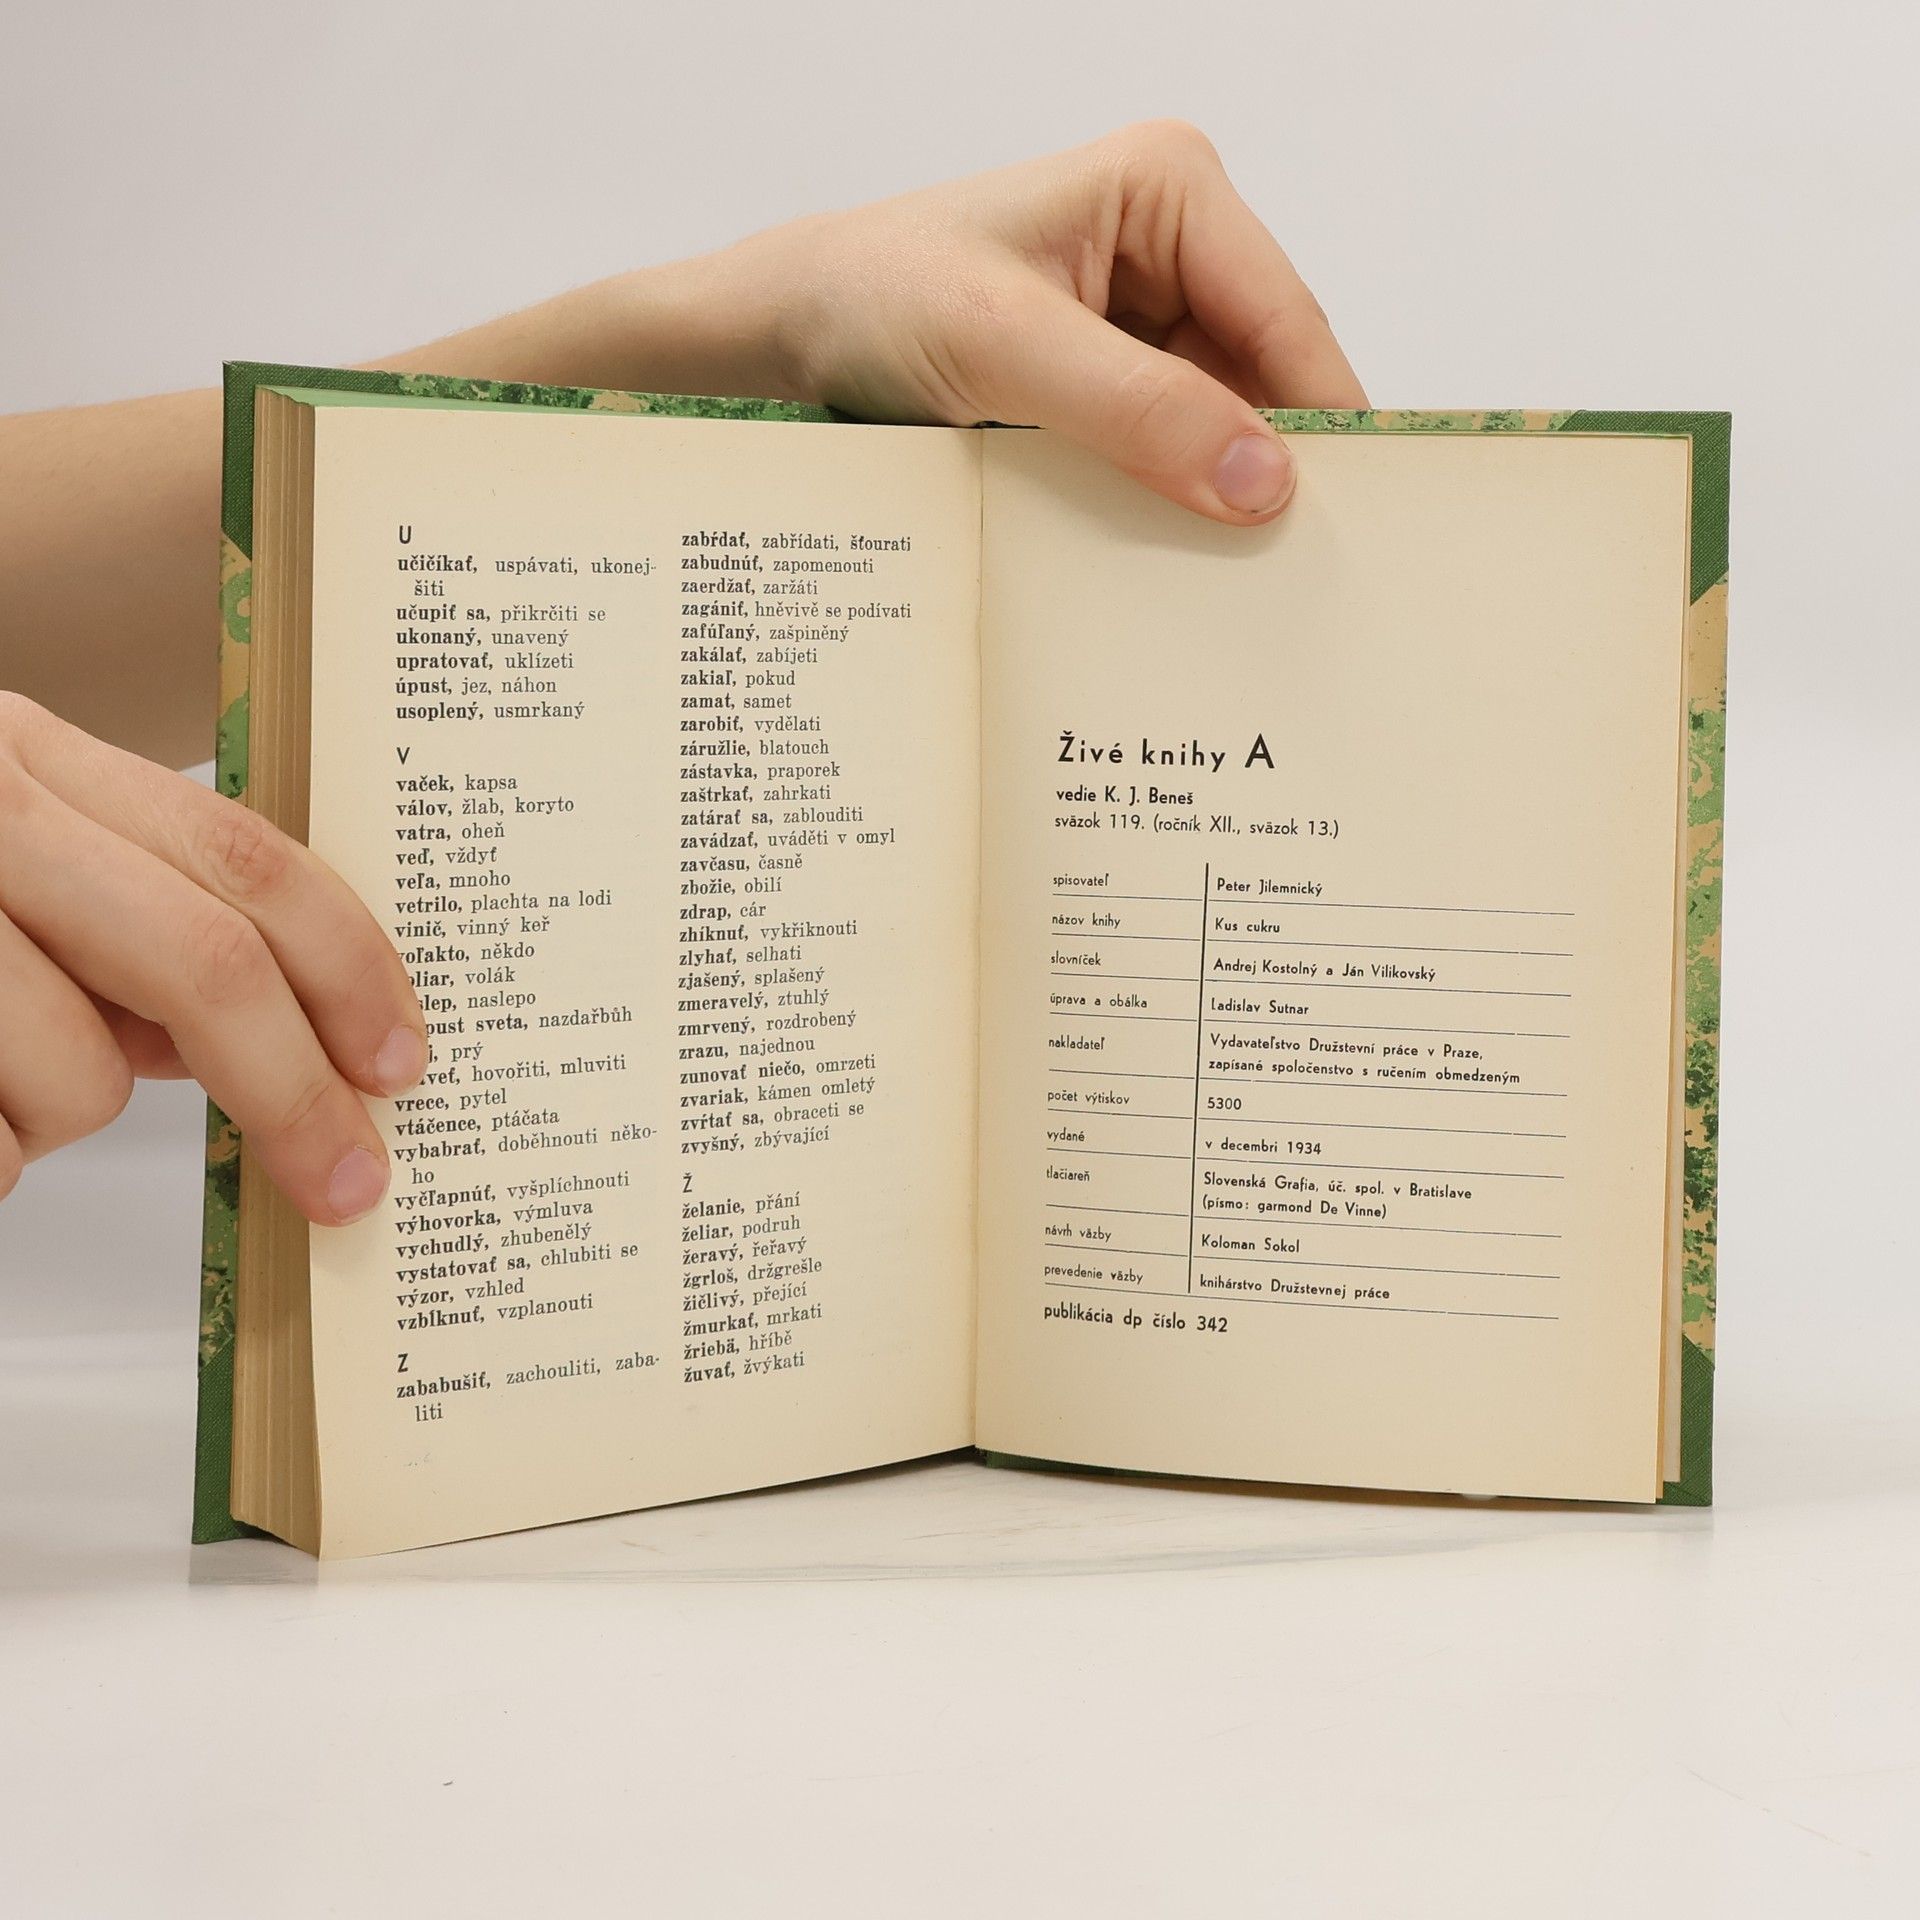 U
učičíkať, uspávati, ukonej-
šiti
učupiť sa, přikrčiti se
ukonaný, unavený
upratovať, uklízeti
úpust, jez, náhon
usoplený, usmrkaný
V
vaček, kapsa
válov, žlab, koryto
vatra, oheň
veď, vždyť
veľa, mnoho
vetrilo, plachta na lodi
vinič, vinný keř
voľakto, někdo
voliar, volák
naslepo
sveta, nazdařbůh
prý
hovořiti, mluviti
vrece, pytel
vtáčence, ptáčata
vybabrať, doběhnouti něko-
ho
vyčľapnúť, vyšplíchnouti
výhovorka, výmluva
vychudlý, zhubenělý
vystatovať sa, chlubiti se
výzor, vzhled
vzbĺknuť, vzplanouti
Z
zababušiť, zachouliti, zaba-
liti
zabŕdať, zabřídati, šťourati
zabudnúť, zapomenouti
zaerdžať, zaržáti
zagániť, hněvivě se podívati
zafúľaný, zašpiněný
zakálať, zabíjeti
zakiaľ, pokud
zamat, samet
zarobiť, vydělati
záružlie, blatouch
zástavka, praporek
zaštrkať, zahrkati
zatárať sa, zablouditi
zavádzať, uváděti v omyl
zavčasu, časně
zbožie, obilí
zdrap, cár
zhíknuť, vykřiknouti
zlyhať, selhati
zjašený, splašený
zmeravelý, ztuhlý
zmrvený, rozdrobený
zrazu, najednou
zunovať niečo, omrzeti
zvariak, kámen omletý
zvŕtať sa, obraceti se
zvyšný, zbývající
Ž
želanie, přání
želiar, podruh
žeravý, řeřavý
žgrloš, držgrešle
žičlivý, přející
žmurkať, mrkati
žriebä, hříbě
žuvať, žvýkati
Živé knihy A
vedie K. J. Beneš
sväzok 119. (ročník XII., sväzok 13.)
spisovateľ Peter Jilemnický
názov knihy Kus cukru
slovníček Andrej Kostolný a Ján Vilikovský
úprava a obálka Ladislav Sutnar
nakladateľ Vydavateľstvo Družstevní práce v Praze,
zapísané spoločenstvo s ručením obmedzeným
počet výtiskov 5300
vydané v decembri 1934
tlačiareň Slovenská Grafia, úč. spol. v Bratislave
(písmo: garmond De Vinne)
návrh väzby Koloman Sokol
prevedenie väzby knihárstvo Družstevnej práce
publikácia dp číslo 342